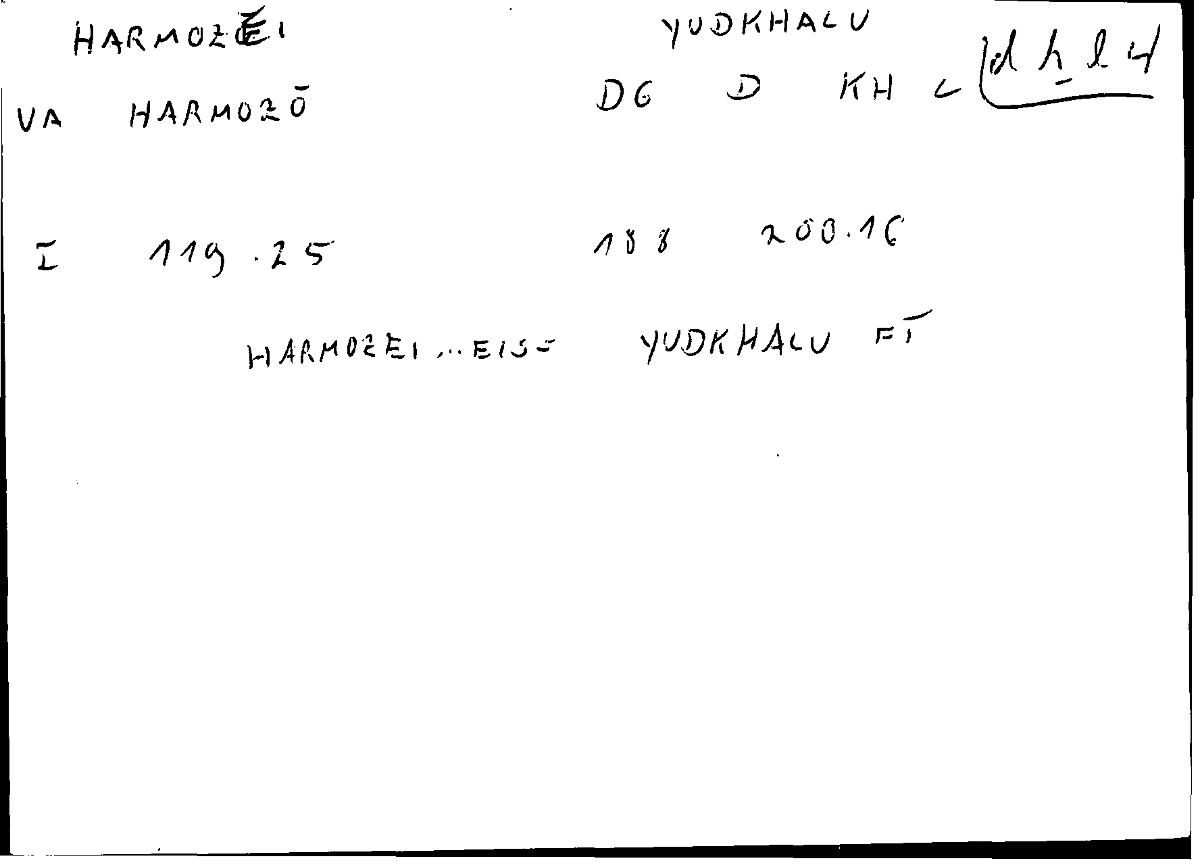 HARMOZEI YUDKHALU
VA HARMOZŌ DG D KH L dẖl4
I 119.25 188 200.16
HARMOZEI ... EIS- YUDKHALU FĪ